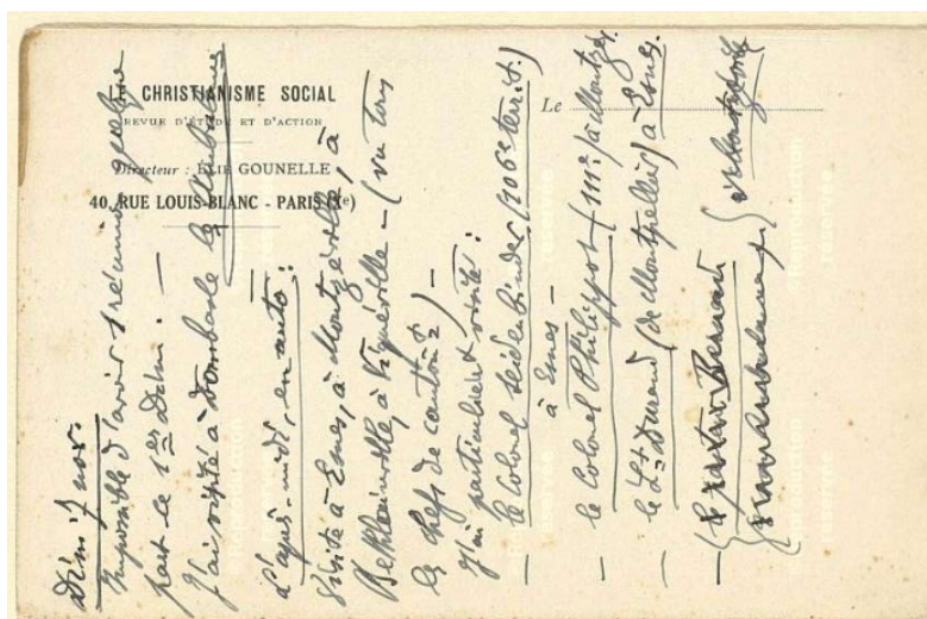 LE CHRISTIANISME SOCIAL
REVUE D'ÉTUDE ET D'ACTION
Directeur : ÉLIE GOUNELLE
40, RUE LOUIS-BLANC - PARIS (Xe)
Le
Dim. 7 nov.
Impossible d'avoir 1 réunion quelque
part le 1er Dim. —
J'ai visité à Dombasle les
L'après-midi, en auto :
Visite à Esnes, à Montzéville, à
Béthelainville, à Vigneville — (vu tous
les chefs de canton{{t}}) —
J'ai particulier{{t}} visité :
— le Colonel Seidenbinder (106e ter. it.)
à Esnes —
— le Colonel Philippot (111e) à Montzé.
— le Lt Durand (de Montpellier) à Esnes.
— le Bernard
Reproduction
réservée